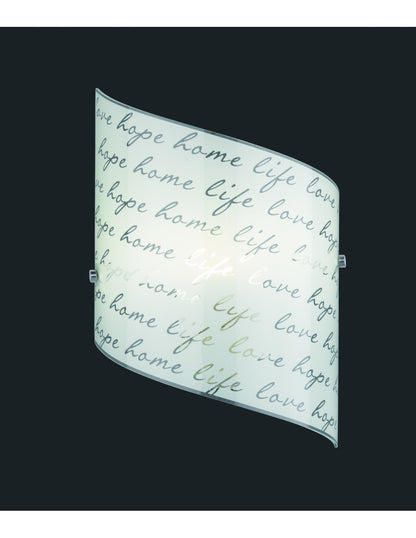 love hope home life love hope
hope home life love hope
love hope home life love hope
hope home life love hope
love hope home life love hope
hope home life love hope
hope home life love hope